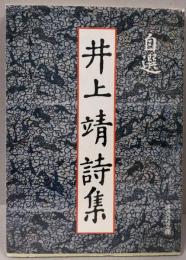 自選
井上靖詩集